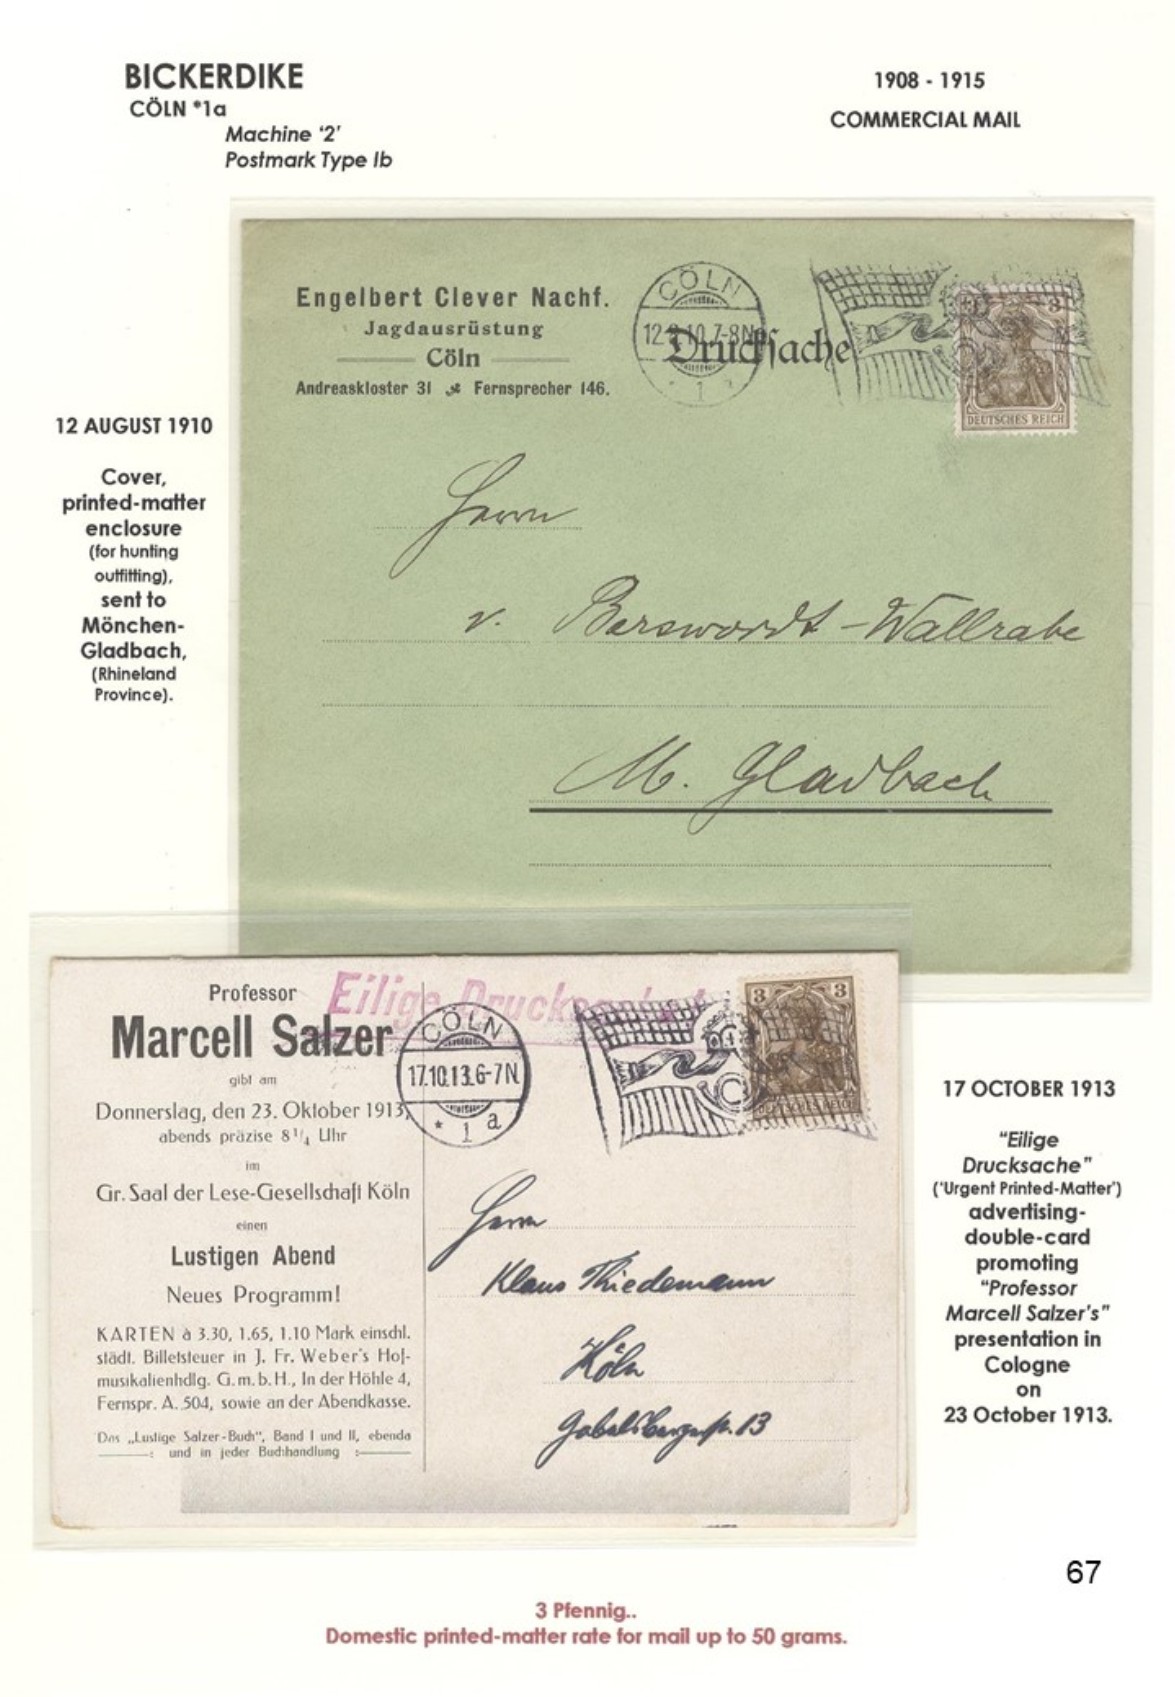 BICKERDIKE
CÖLN *1a
Machine ‘2’
Postmark Type Ib
1908 - 1915
COMMERCIAL MAIL
Engelbert Clever Nachf.
Jagdausrüstung
Cöln
Andreaskloster 31 Fernsprecher 146.
CÖLN
12.8.10.7-8N
* 1
Drucksache
3
DEUTSCHES REICH
Herrn
v. Berswordt-Wallrabe
M. Gladbach
12 AUGUST 1910
Cover,
printed-matter
enclosure
(for hunting
outfitting),
sent to
Mönchen-
Gladbach,
(Rhineland
Province).
Professor
Marcell Salzer
gibt am
Donnerslag, den 23. Oktober 1913,
abends präzise 8¼ Uhr
im
Gr. Saal der Lese-Gesellschaft Köln
einen
Lustigen Abend
Neues Programm!
KARTEN à 3.30, 1.65, 1.10 Mark einschl.
städt. Billetsteuer in J. Fr. Weber's Hof-
musikalienhdlg. G.m.b.H., In der Höhle 4,
Fernspr. A. 504, sowie an der Abendkasse.
Das „Lustige Salzer-Buch“, Band I und II, ebenda
und in jeder Buchhandlung
Eilige Drucksache
CÖLN
17.10.13.6-7N
* 1 a
3 3
DEUTSCHES REICH
Herrn
Klaus Thiedemann
Köln
Gabelsbergerstr. 13
17 OCTOBER 1913
“Eilige
Drucksache”
(‘Urgent Printed-Matter’)
advertising-
double-card
promoting
“Professor
Marcell Salzer’s”
presentation in
Cologne
on
23 October 1913.
67
3 Pfennig..
Domestic printed-matter rate for mail up to 50 grams.